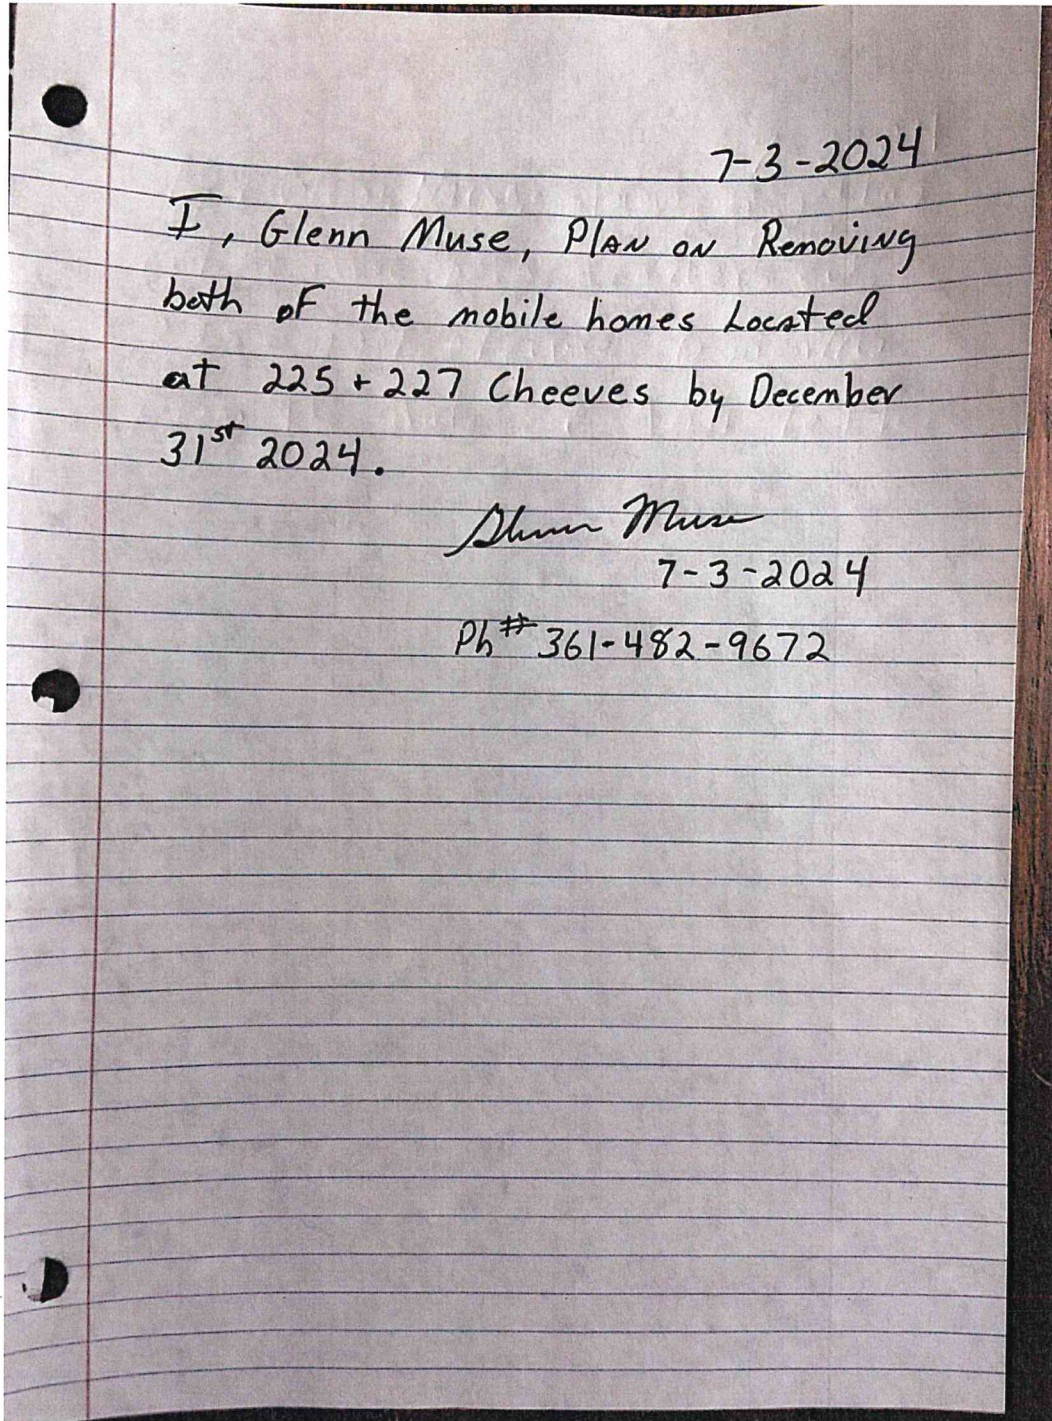 7-3-2024
I, Glenn Muse, Plan on Removing
both of the mobile homes Located
at 225 + 227 Cheeves by December
31st 2024.
Glenn Muse
7-3-2024
Ph# 361-482-9672